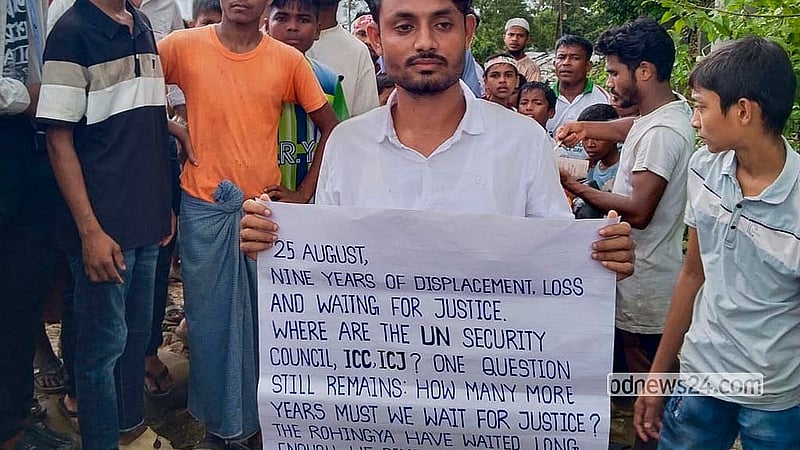 25 AUGUST,
NINE YEARS OF DISPLACEMENT, LOSS
AND WAITNG FOR JUSTICE.
WHERE ARE THE UN SECURITY
COUNCIL, ICC, ICJ? ONE QUESTION
STILL REMAINS: HOW MANY MORE
YEARS MUST WE WAIT FOR JUSTICE?
THE ROHINGYA HAVE WAITED LONG
ENOUGH WE
bdnews24.com